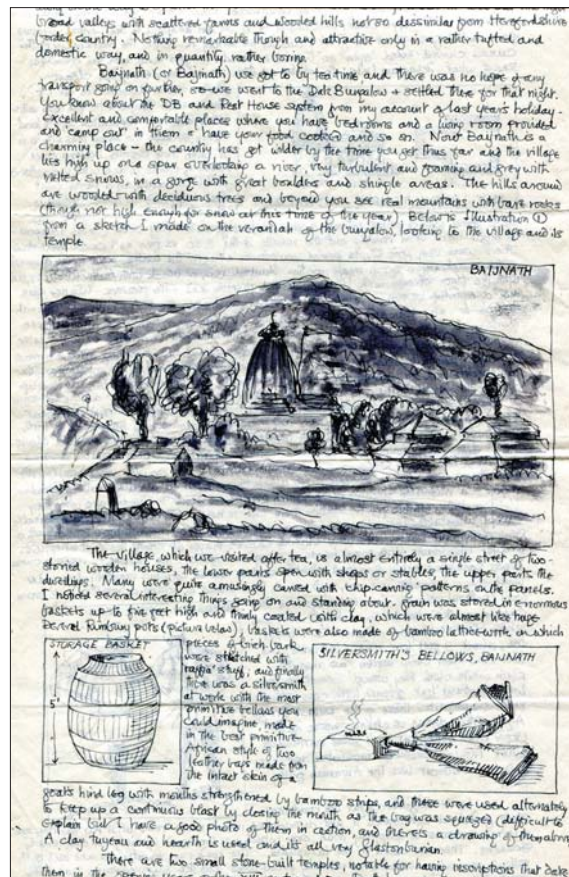 broad valleys with scattered farms and wooded hills not so dissimilar from Herefordshire
border country. Nothing remarkable though and attractive only in a rather tufted and
domestic way, and in quantity rather boring.
Baijnath (or Bayjnath) we got to by tea time and there was no hope of any
transport going on further, so we went to the Dak Bungalow & settled there for that night.
You know about the DB and Rest House system from my account of last years holiday -
excellent and comfortable places where you have bedrooms and a living room provided
and camp out in them & have your food cooked and so on. Now Baijnath is a
charming place - the country has got wilder by the time you get thus far and the village
lies high up on a spur overlooking a river, very turbulent and foaming and grey with
melted snows, in a gorge with great boulders and shingle areas. The hills around
are wooded with deciduous trees and beyond you see real mountains with bare rocks
(though not high enough for snow at this time of the year). Below is Illustration ①
from a sketch I made on the verandah of the bungalow, looking to the village and its
temple.
BAIJNATH
The village, which we visited after tea, is almost entirely a single street of two-
storied wooden houses, the lower parts open with shops or stables, the upper parts the
dwellings. Many were quite amusingly carved with chip-carving patterns on the panels.
I noticed several interesting things going on and standing about. Grain was stored in enormous
baskets up to five feet high and thinly coated with clay, which were almost like huge
Several pots (picture below), baskets were also made of bamboo lattice-work on which
STORAGE BASKET
5'
pieces of birch bark
were stitched with
raffia stuff; and finally
there was a silversmith
at work with the most
primitive bellows you
could imagine, made
in the best primitive
African style of two
leather bags made from
the intact skin of a
SILVERSMITH'S BELLOWS, BAIJNATH
goats hind leg with mouths strengthened by bamboo strips, and these were used alternately
to keep up a continuous blast by closing the mouth as the bag was squeezed (difficult to
explain but I have a good photo of them in action, and there's a drawing of them above
A clay tuyeau and hearth is used and its all very Glastonburian.
There are two small stone-built temples, notable for having inscriptions that date
them in the